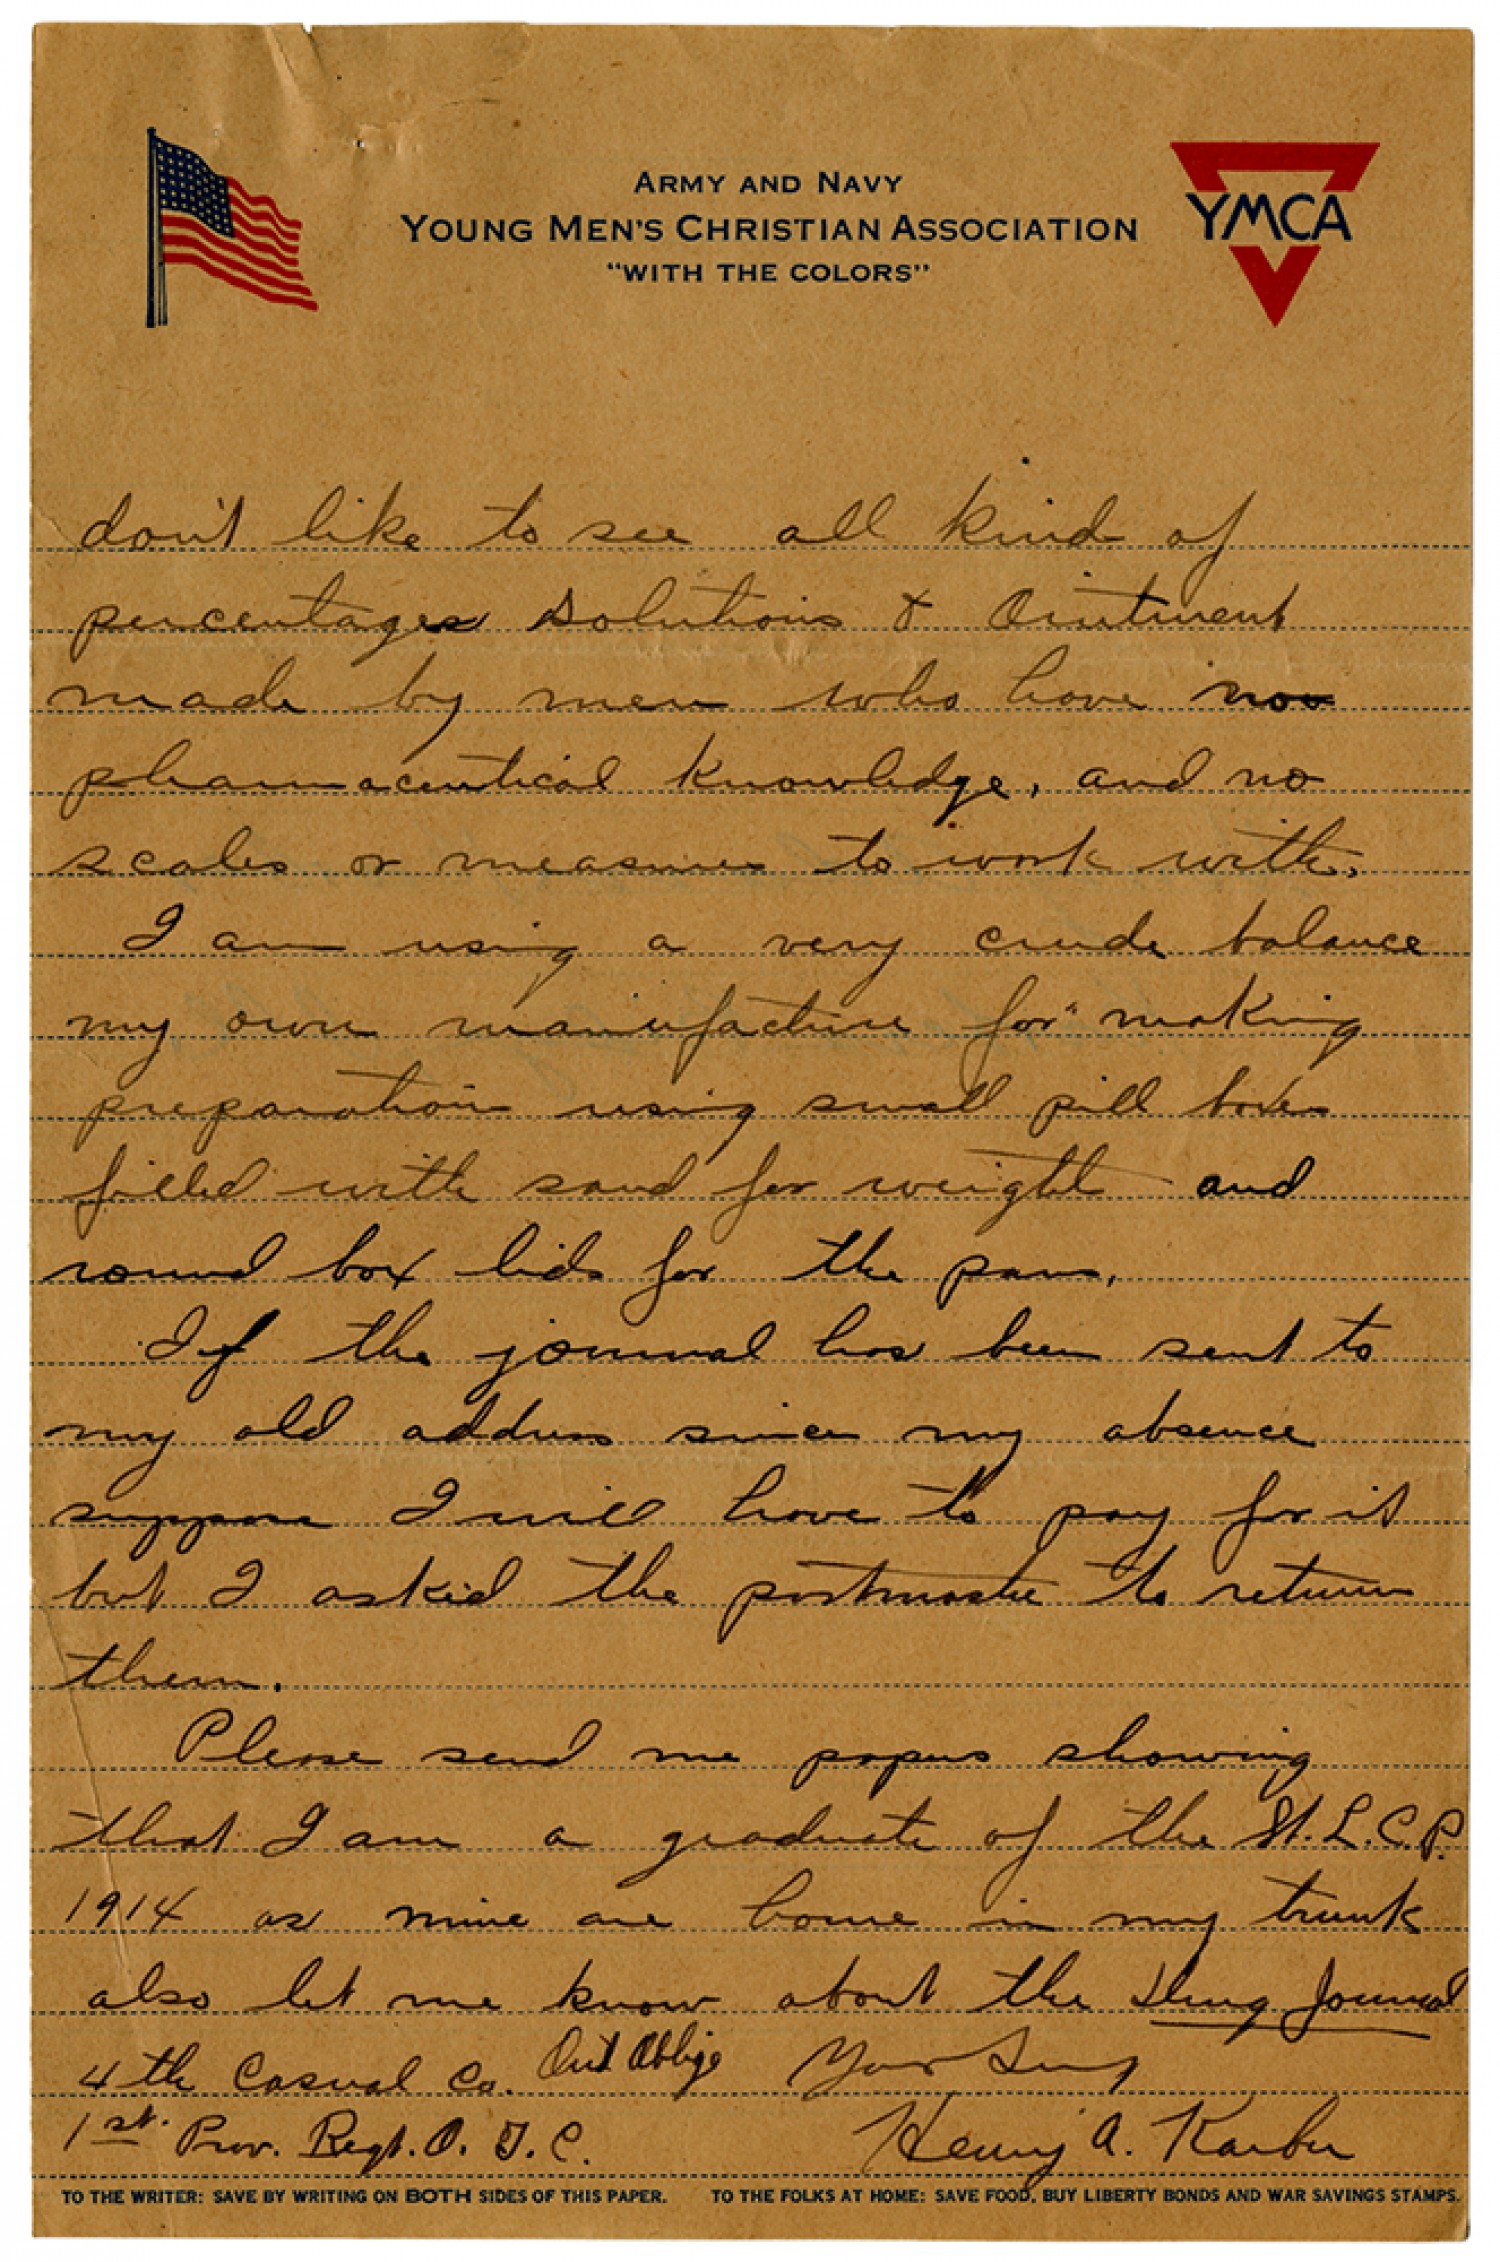 ARMY AND NAVY
YOUNG MEN'S CHRISTIAN ASSOCIATION
"WITH THE COLORS"
YMCA
don't like to see all kind of
percentages solutions & Ointment
made by men who have no
pharmaceutical knowledge, and no
scales or measures to work with.
I am using a very crude balance
my own manufacture for making
preparation using small pill boxes
filled with sand for weight and
round box lids for the pans.
If the journal has been sent to
my old address since my absence
suppose I will have to pay for it
but I asked the postmaster to return
them.
Please send me papers showing
that I am a graduate of the St. L. C. P.
1914 as mine are home in my trunk
also let me know about the Drug Journal
4th Casual Co. And Oblige Your
1st. Prov. Regt. O. T. C. Henry A. Karber
TO THE WRITER: SAVE BY WRITING ON BOTH SIDES OF THIS PAPER. TO THE FOLKS AT HOME: SAVE FOOD, BUY LIBERTY BONDS AND WAR SAVINGS STAMPS.